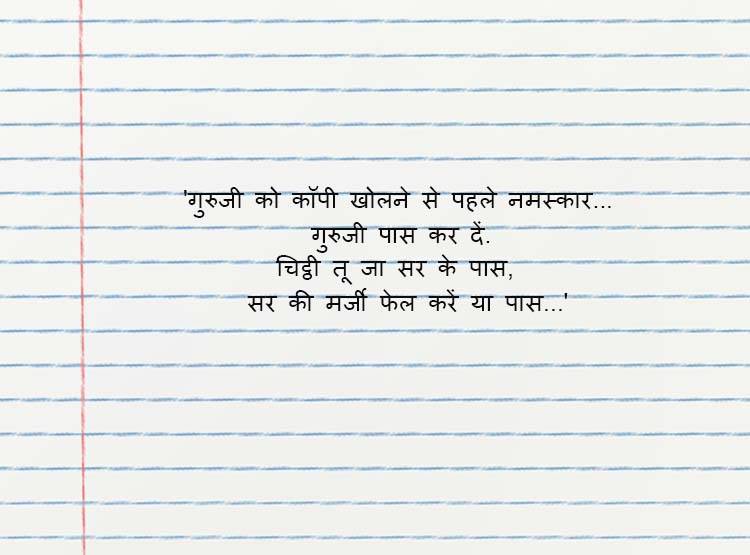 'गुरुजी को कॉपी खोलने से पहले नमस्कार...
गुरुजी पास कर दें.
चिट्ठी तू जा सर के पास,
सर की मर्जी फेल करें या पास...'